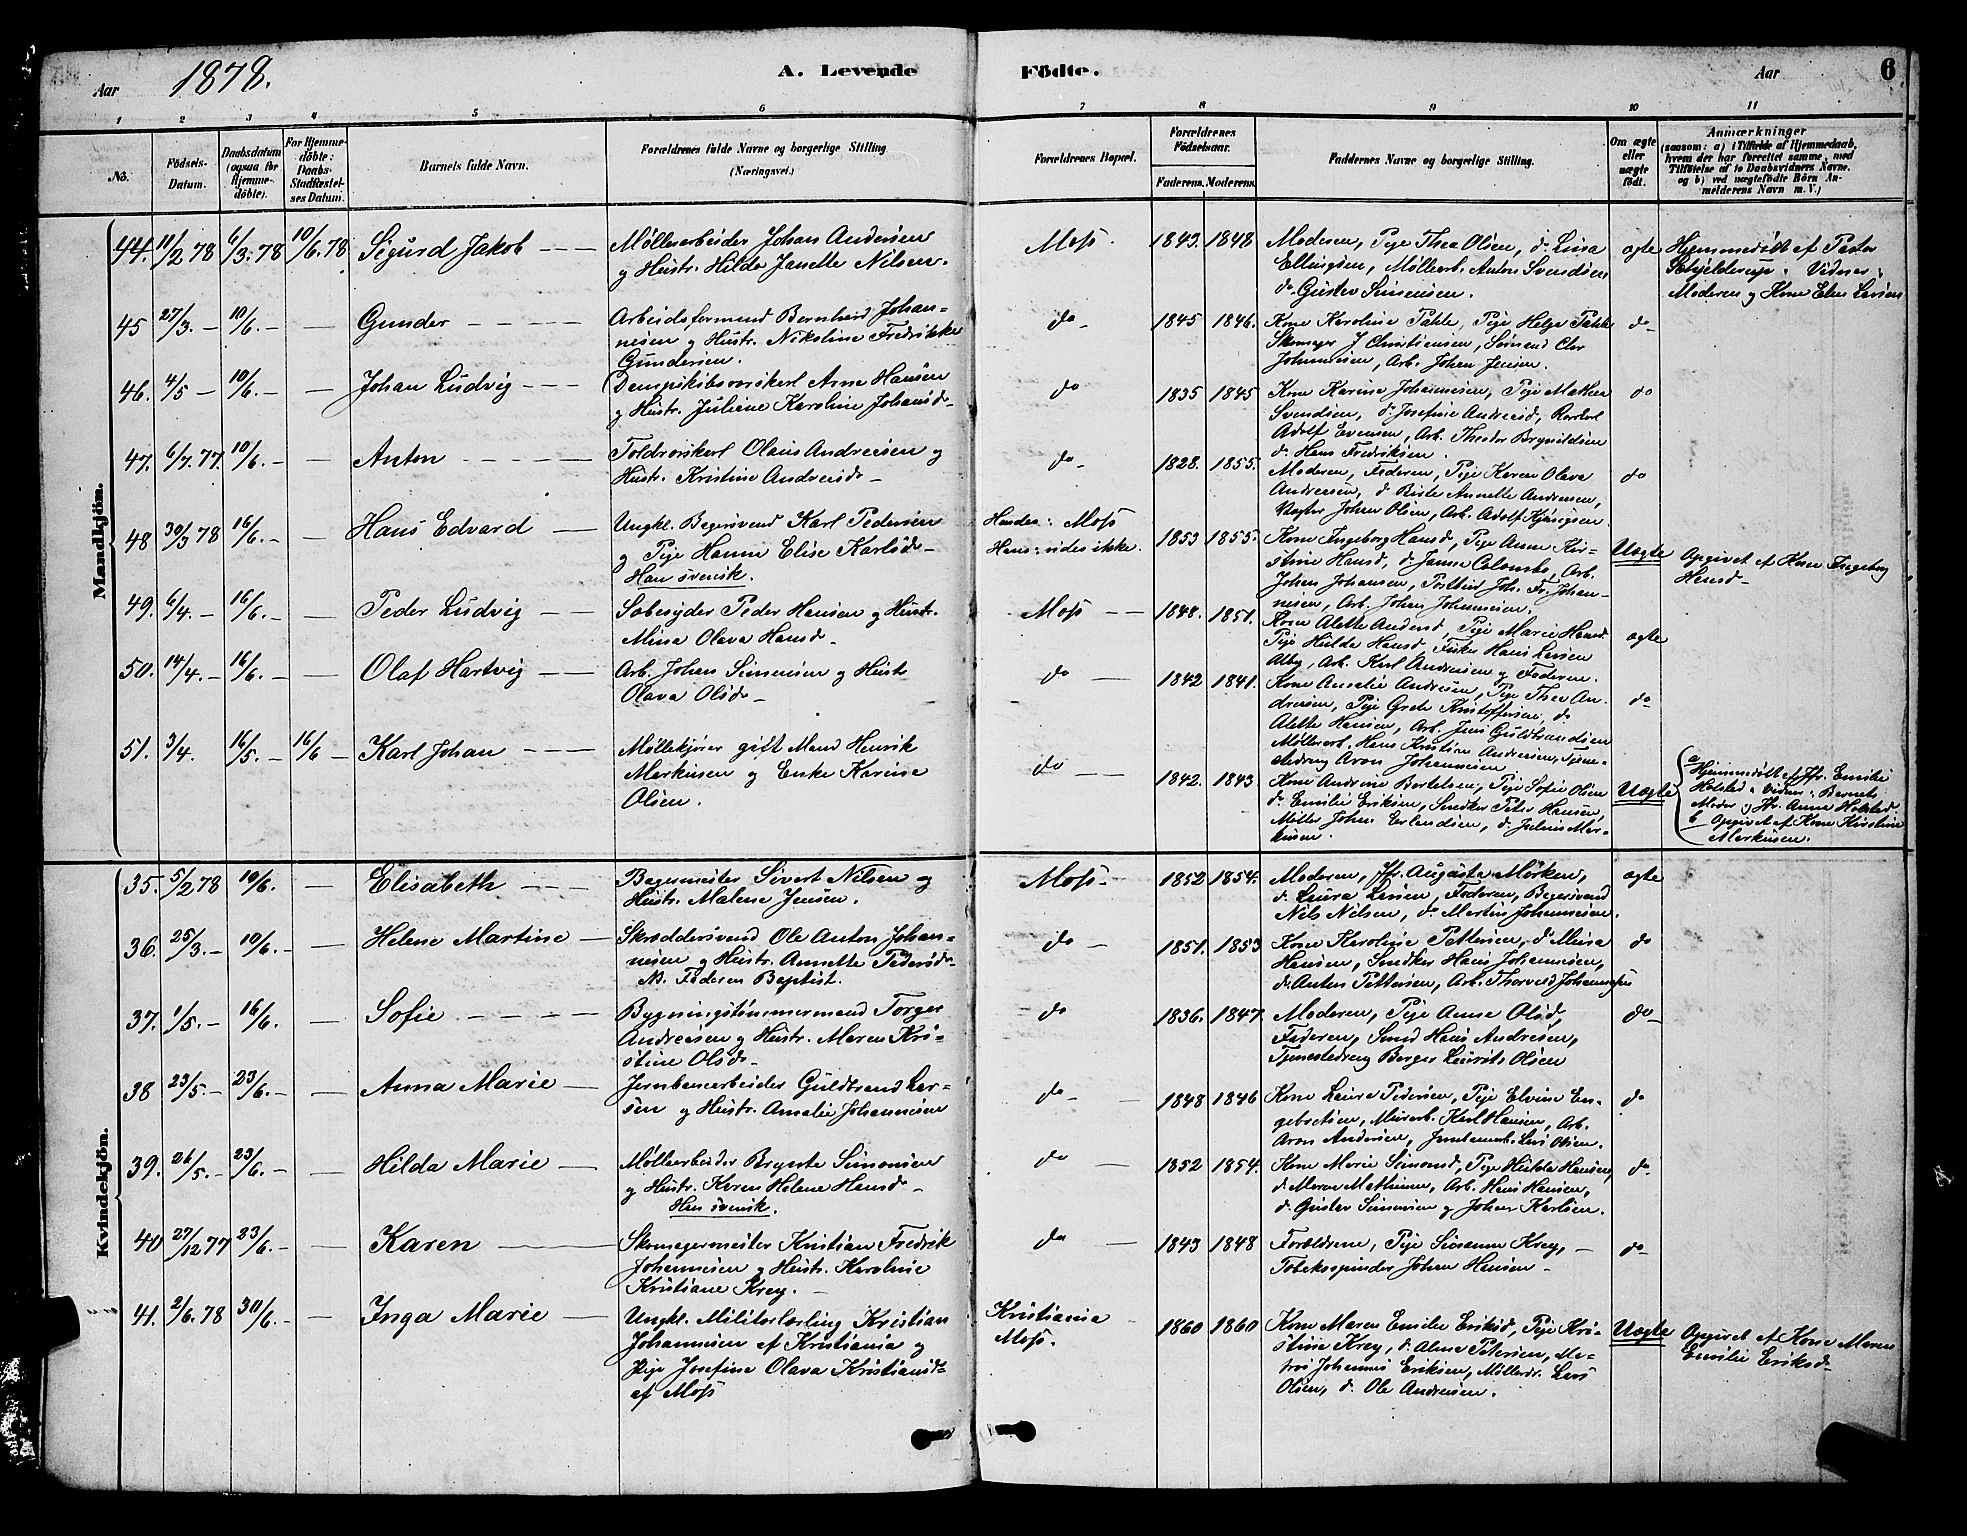 Aar 1878. A. Levende Födte. Aar 6
1 2 3 4 5 6 7 8 9 10 11
No. Födsels-Datum. Daabsdatum (ogsaa for Hjemme-döbte). For Hjemme-döbte: Daabs-Stadfæstel-ses Datum. Barnets fulde Navn. Forældrenes fulde Navne og borgerlige Stilling (Næringsvei.) Forældrenes Bopæl. Forældrenes Födselsaar. Faderens. Moderens. Faddernes Navne og borgerlige Stilling. Om ægte eller uægte födt. Anmærkninger (saasom: a) i Tilfælde af Hjemmedaab, hvem der har forrettet samme, med Tilföielse af to Daabsvidners Navne, og b) ved uægtefödte Börn An-melderens Navn m. V.)
Mandkjön.
44. 11/2 78 6/3. 78 10/6. 78 Sigurd Jakob
Møllearbeider Johan Andersen
og Hustr. Hilda Janette Nilsen.
Moss. 1843. 1848
Moderen, Pige Thea Olsen, do Lina
Ellingsen, Møllearb. Anton Svendsen
do Gustav Simensen.
ægte
Hjemmedøbt af Pastor
Schjelderup. Vidner:
Moderen og Kone Elen Larsen
45 27/3. 10/6. Gunder
Arbeidsformand Bernhard Johan-
nesen og Hustr. Nikoline Fredrikke
Gundersen.
do 1845 1846.
Kone Karoline Pakle, Pige Helga Pakle
Skomager J Christiansen, Sømand Chr
Johannesen, Arb. Johan Jensen.
do
46. 4/5 10/6. Johan Ludvig
Dampskibsvrskarl Arne Hansen
og Hustr. Juliane Karoline Johansd
do 1835 1845
Kone Karine Johannesen, Pige Mathea
Svendsen, do Josefine Andreasd,
Adolf Evensen, Arb. Theodor Brynildsen
do Hans Fredriksen.
do
47. 6/7. 77. 10/6. Anton
Toldrorskarl Olaus Andreasen og
Hustr. Kristine Andreasd
do 1828. 1855.
Moderen, Faderen, Pige Karen Olava
Andreasen, do Birte Annette Andreasen,
Vægter Johan Olsen, Arb. Adolf Kjønigsen.
do
48 30/3 78 16/6. Hans Edvard
Ungkl. Bagersvend Karl Pedersen
og Pige Hanna Elise Karlsd
Han svensk.
Hendes: Moss
Hans: vides ikke.
1853 1855.
Kone Ingeborg Hansd, Pige Anne Kir-
stine Hansd, do Janna Colombo, Arb.
Johan Johansen, Postbud Joh. Fr. Johan-
nesen, Arb. Johan Johannesen.
Uægte
Opgivet af Kone Ingeborg
Hansd
49. 6/4. 16/6. Peder Ludvig
Sæbesyder Peder Hansen og Hustr.
Mina Olava Hansd
Moss 1848. 1851.
Kone Alette Andersd, Pige Marie Hansd
Pige Hulda Hansd, Fisker Hans Larsen
Alby, Arb. Karl Andersen og Faderen.
ægte
50. 14/4. 16/6. Olaf Hartvig
Arb. Johan Simensen og Hustr
Olava Olsd
do 1842 1841.
Kone Amalie Andresen, Pige Thea An-
dresen, Pige Grete Kristoffersen, do
Alette Hansen, Arb. Jens Guldbrandsen
Møllearb. Hans Kristian Andersen, Tjene-
stedreng Aron Johannesen
do
51. 3/4. 16/5. 16/6 Karl Johan
Møllekjører gift Mand Henrik
Markusen og Enke Karine
Olsen.
do 1842. 1843
Kone Andrine Bertelsen, Pige Sofie Olsen
do Emilie Eriksen, Snedker Peter Hansen,
Møller Johan Erlandsen, do Julius Mar-
kusen.
Uægte
a Hjemmedøbt af Jfr. Emilie
Holstad. Vidner: Barnets
Moder og Jfr. Anne Holstad
b Opgivet af Kone Kirstine
Markusen.
Kvindekjön.
35. 5/2 78 10/6. Elisabeth
Bagermester Sivert Nilsen og
Hustr. Malene Jensen.
Moss 1852 1854.
Moderen, Jfr. Augusta Mørken,
do Laura Larsen, Faderen, Bagersvend
Nils Nilsen, do Martin Johannesen.
ægte
36. 25/3. 10/6. Helene Martine
Skræddersvend Ole Anton Johan-
nesen og Hustr. Annette Pedersd
N. Faderen Baptist.
do 1851. 1853
Kone Karoline Pettersen, do Mina
Hansen, Snedker Hans Johannesen,
do Anton Pettersen, Arb. Thorvald Johannesen
do
37. 1/5. 16/6. Sofie
Bygningstømmermand Torger
Andreasen og Hustr. Maren Kri-
stine Olsd
do 1836. 1847
Moderen, Pige Anna Olsd,
Faderen, Smed Hans Andresen,
Tjenestedreng Berger Laurits Olsen
do
38 23/5. 23/6. Anna Marie
Jernbanearbeider Guldbrand Lar-
sen og Hustr. Amalie Johannesen
do 1848 1846
Kone Laura Pedersen, Pige Elvine En-
gebretsen, Murarb. Karl Hansen, Arb.
Aron Andersen, Jernbanearb. Lars Olsen.
do
39. 26/5. 23/6. Hilda Marie
Møllearbeider Brynte Simonsen
og Hustr. Karen Helene Hansd
Han svensk.
do 1852 1854.
Kone Marie Simonsd, Pige Hulda Hansen,
do Maren Mathisen, Arb. Hans Hansen,
do Gustav Simonsen og Johan Karlsen.
do
40 27/12 77 23/6. Karen
Skomagermester Kristian Fredrik
Johannesen og Hustr. Karoline
Kristiane Krog.
do 1843 1848
Forældrene, Pige Susanne Krog,
Tobaksspinder Johan Hansen
do
41. 2/6. 78 30/6. Inga Marie
Ungkl. Militærlærling Kristian
Johannesen af Kristiania og
Pige Josefine Olava Kristiansd
af Moss
Kristiania
Moss.
1860 1860
Kone Maren Emilie Eriksd, Pige Kri-
stine Krog, do Petersen, Ma-
tros Johannes Eriksen, Møllerdr. Lars
Olsen, do Ole Andreasen.
Uægte
Opgivet af Kone Maren
Emilie Eriksd